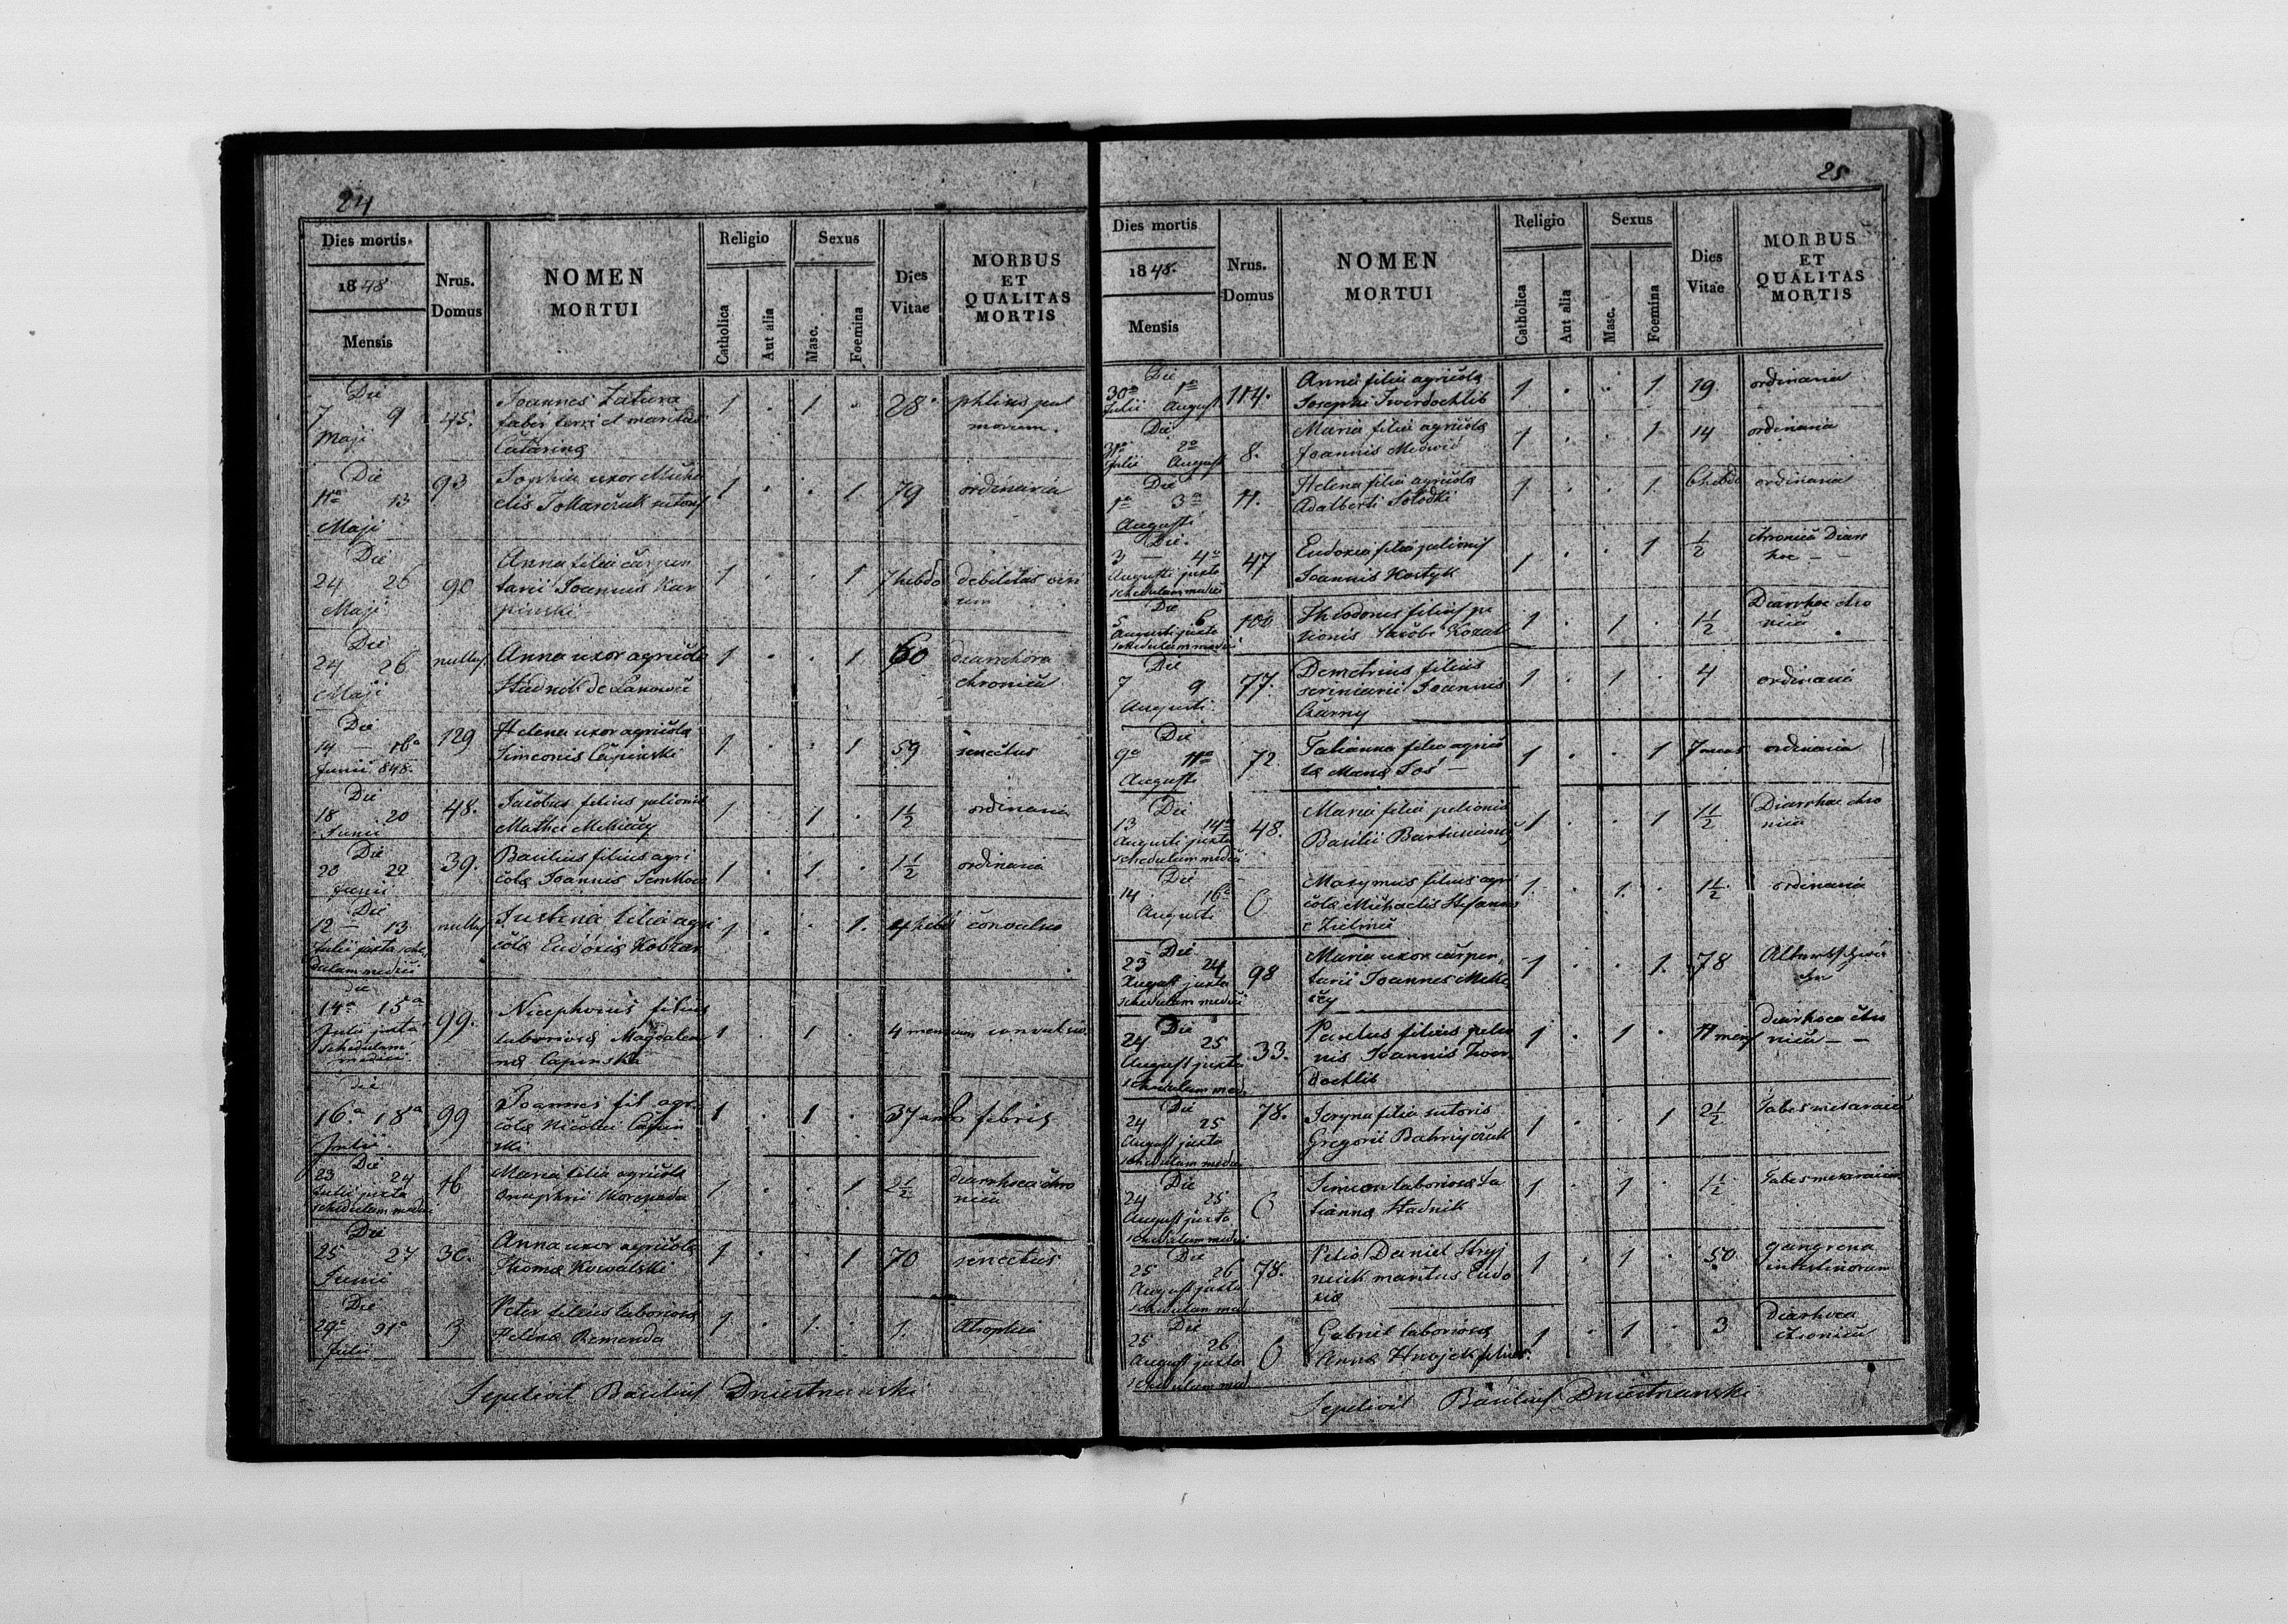 24
Dies mortis
1848
Mensis
Nrus.
Domus
NOMEN
MORTUI
Religio
Catholica
Aut alia
Sexus
Masc.
Foemina
Dies
Vitae
MORBUS
ET
QUALITAS
MORTIS
Die
7 9
Maji
45.
Joannes
faber ferri et maritus
Catarinæ
1 . 1 .
28
phtisis pul
monum.
Die
11a 13
Maji
93
Sophia uxor Micha
elis sutoris
1 . . 1
79
ordinaria
Die
24 26
Maji
90
Anna filia carpen
tarii Joannis Kar
pinski
1 . . 1
7 hebdo
debilitas viri
um
Die
24 26
Maji
nullus
Anna uxor agricolæ
Hudnik de
1 . . 1
60
diarrhora
chronica
Die
14 — 16a
Junii 848.
129
Helena uxor agricolæ
Simeonis Capinski
1 . . 1
59
senectus
Die
18 20
Junii
48.
Jacobus filius pelionis
Mathei
1 . 1 .
1 1/2
ordinaria
Die
20 22
Junii
39.
Basilius filius agri
colæ Joannis
1 . 1 .
1 1/2
ordinaria
Die
12 — 13
Julii juxta sche
dulam medici
nullus
Justina filia agri
colæ Eudoxia
1 . . 1.
4 hebd
convulsio
die
14a 15a
Julii juxta
schedulam
medici
99.
Nicephorus filius
laboriosæ Magdale
næ Capinska
1 . 1 .
4 mensium
convulsio
die
16a 18a
Julii
99
Joannes fil. agri
colæ Nicolai Capin
ski
1 . 1 .
37
febris
Die
23 24
Julii juxta
schedulam medici
16
Maria filia agricolæ
Onuphrii
1 . . 1
2 1/2
diarrhoea chro
nica
Die
25 27
Junii
30.
Anna uxor agricolæ
Thomæ Kowalski
1 . . 1
70
senectus
Die
29a 31a
Julii
3
Peter filius laboriosæ
Helenæ Remenda
1 . 1 .
1.
Atrophia
Sepelivit Basilius Dniestrzanski
25
Dies mortis
1848.
Mensis
Nrus.
Domus
NOMEN
MORTUI
Religio
Catholica
Aut alia
Sexus
Masc.
Foemina
Dies
Vitae
MORBUS
ET
QUALITAS
MORTIS
Die
30a 1a
Julii August
114.
Anna filia agricolæ
Josephi Twerdochlib
1 . . 1
19.
ordinaria
Die
31a 2a
Julii August
8.
Maria filia agricolæ
Joannis
1 . . 1
14
ordinaria
Die
1a 3a
Augusti
11.
Helena filia agricolæ
Adalberti Solodki
1 . . 1.
6 hebdo
ordinaria
Die.
3 4a
Augusti juxta
schedulam medici
47
Eudoxia filia pelionis
Joannis Kostyk
1 . . 1
1/2
chronica Diarr
hoe —
Die
5 6
Augusti juxta
schedulam medici
Theodorus filius pe
lionis Jacobi
1 . 1 .
1 1/2
Diarrhoe chro
nica
Die
7 9
Augusti
77.
Demetrius filius
scriniarii Joannis
Czarny
1 . 1 .
4
ordinaria
Die
9a 11a
Augusti
72
Tatianna filia agrico
læ
1 . . 1
7
ordinaria
Die
13 14a
Augusti juxta
schedulam medici
48.
Maria filia pelionis
Basilii
1 . . 1
1 1/2
Diarrhoe chro
nica
Die
14 16a
Augusti
0
Maxymus filius agri
colæ Michaelis
1 . 1 .
1 1/2
ordinaria
Die
23 24
August juxta
schedulam medici
98
Maria uxor carpen
tarii Joannes
1 . . 1.
78
Altersschwä
che
Die
24 25
August juxta
schedulam med.
33.
Paulus filius pelio
nis Joannis Twer
dochlib
1 . 1 .
11 mens
diarhoea chro
nica — —
Die
24 25
August juxta
schedulam medici
78.
Iryna filia sutoris
Gregorii
1 . . 1
2 1/2
Tabes mesaraica
Die
24 25
August juxta
schedulam medici
0
Simeon laboriosæ Ta
tiannæ Hudnik
1 . 1 .
1 1/2
Tabes mesaraica
Die
25 26
August juxta
schedulam med
78.
Pelio Daniel Stryj
maritus Eudo
xiæ
1 . 1 .
50.
gangrena
intestinorum
Die
25 26
August juxta
schedulam med.
0
Gabriel laboriosæ
Annæ filius.
1 . 1 .
3
diarhoea
chronica
Sepelivit Basilius Dniestrzanski